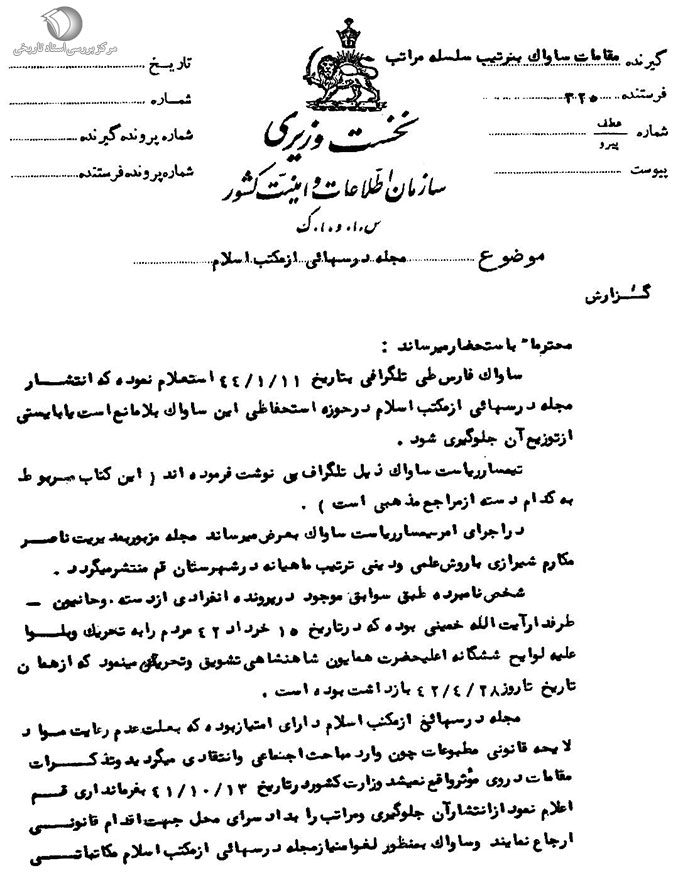 مرکز بررسی اسناد تاریخی
گیرنده مقامات ساواک بترتیب سلسله مراتب
فرستنده ۳۲۵
شماره عطف پیرو
پیوست
تاریخ
شماره
شماره پرونده گیرنده
شماره پرونده فرستنده
نخست وزیری
سازمان اطلاعات و امنیت کشور
س.ا.و.ا.ک
موضوع مجله درسهائی از مکتب اسلام
گزارش
محترماً باستحضار میرساند :
ساواک فارس طی تلگرافی بتاریخ ۴۴/۱/۱۱ استعلام نموده که انتشار
مجله درسهائی از مکتب اسلام در حوزه استحفاظی این ساواک بلامانع است یا بایستی
از توزیع آن جلوگیری شود .
تیمسار ریاست ساواک ذیل تلگراف پی نوشت فرموده اند ( این کتاب مربوط
به کدام دسته از مراجع مذهبی است ) .
در اجرای امر تیمسار ریاست ساواک بعرض میرساند مجله مزبور بمدیریت ناصر
مکارم شیرازی با روش علمی و دینی ترتیب ماهیانه در شهرستان قم منتشر میگردد .
شخص نامبرده طبق سوابق موجود در پرونده انفرادی از دسته روحانیون –
طرفدار آیت الله خمینی بوده که در تاریخ ۱۵ خرداد ۴۲ مردم را به تحریک و بلوا
علیه لوایح ششگانه اعلیحضرت همایون شاهنشاهی تشویق و تحریک مینمود که از همان
تاریخ تا روز ۴۲/۴/۲۸ بازداشت بوده است .
مجله درسهائی از مکتب اسلام دارای امتیاز بوده که بعلت عدم رعایت مواد
لایحه قانونی مطبوعات چون وارد مباحث اجتماعی و انتقادی میگردید و تذکرات
مقامات در وی مؤثر واقع نمیشد وزارت کشور در تاریخ ۴۱/۱۰/۱۳ بفرمانداری قم
اعلام نمود از انتشار آن جلوگیری و مراتب را بدادسرای محل جهت اقدام قانونی
ارجاع نمایند و ساواک بمنظور لغو امتیاز مجله درسهائی از مکتب اسلام مکاتباتی